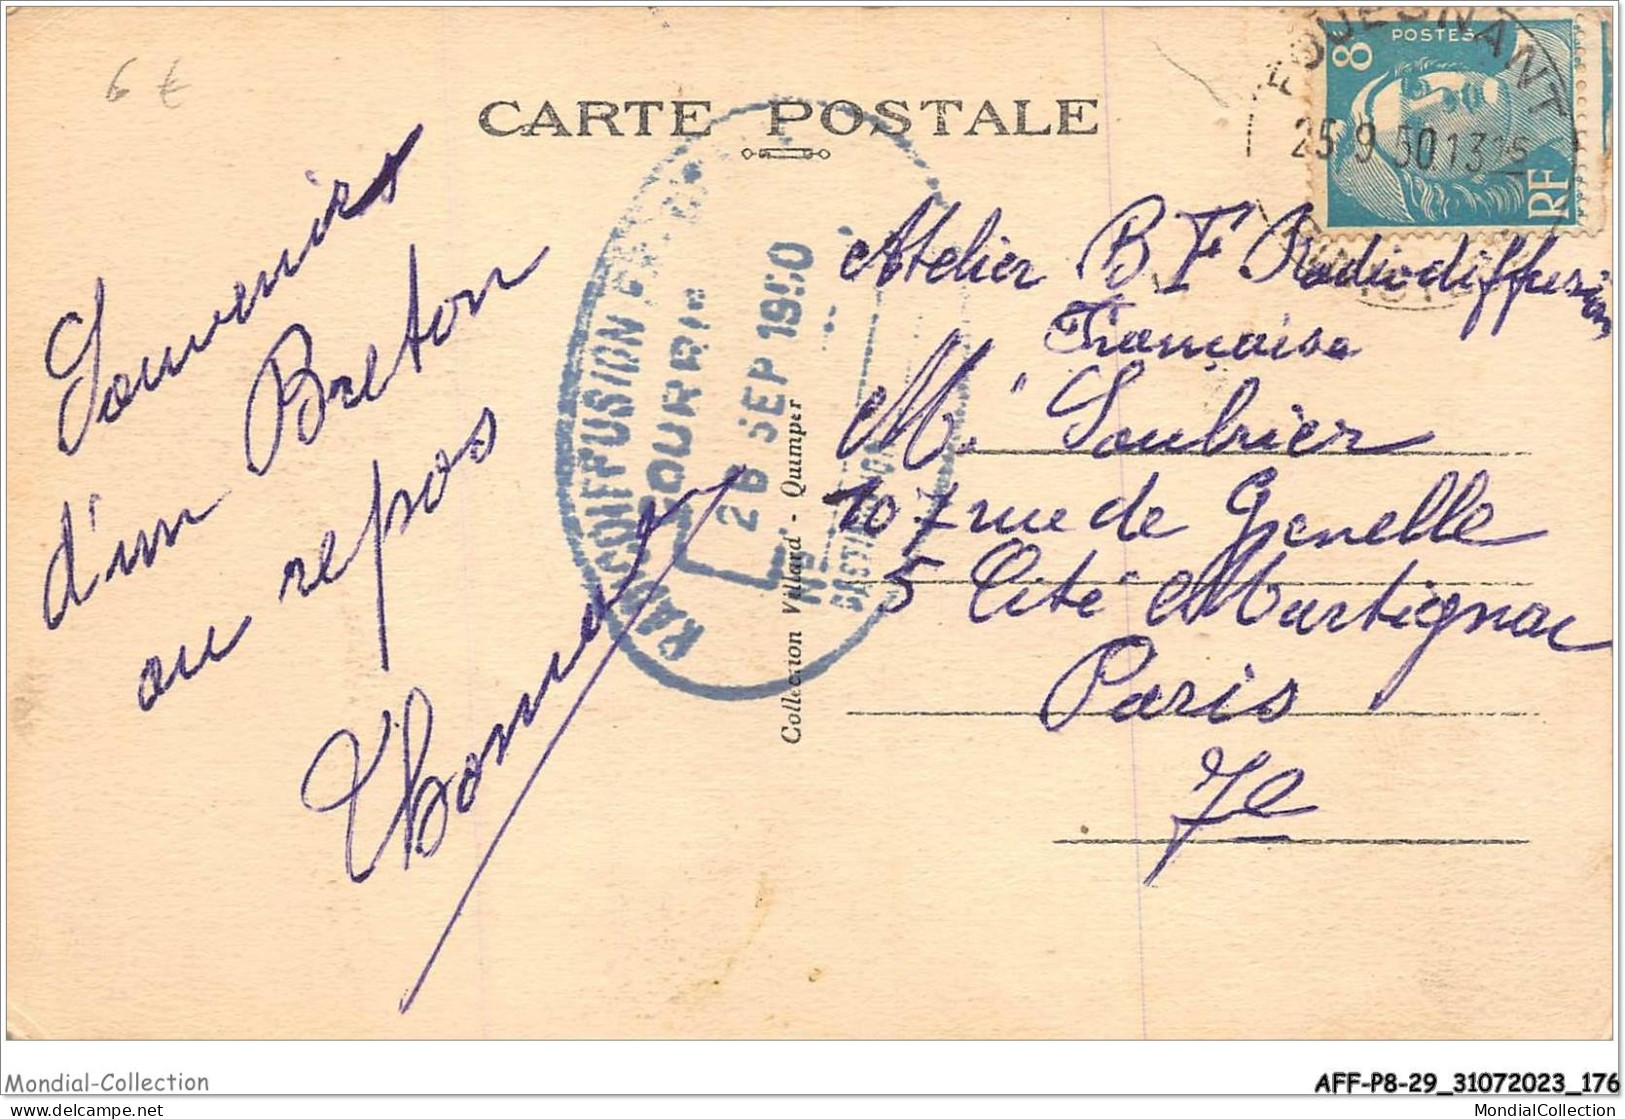 6 €
CARTE POSTALE
8F
POSTES
RF
FOUESNANT
25 9 50 13 15
FINISTERE
Souvenirs
d'un Breton
au repos
RADIODIFFUSION
COURRIER
26 SEP 1950
N°
DESTINATION
Collection Villard - Quimper
Atelier B F Radiodiffusion
Française
M. Soubrier
107 rue de Grenelle
5 Cité Martignac
Paris
7e
Mondial-Collection
AFF-P8-29_31072023_176
delcampe.net
MondialCollection